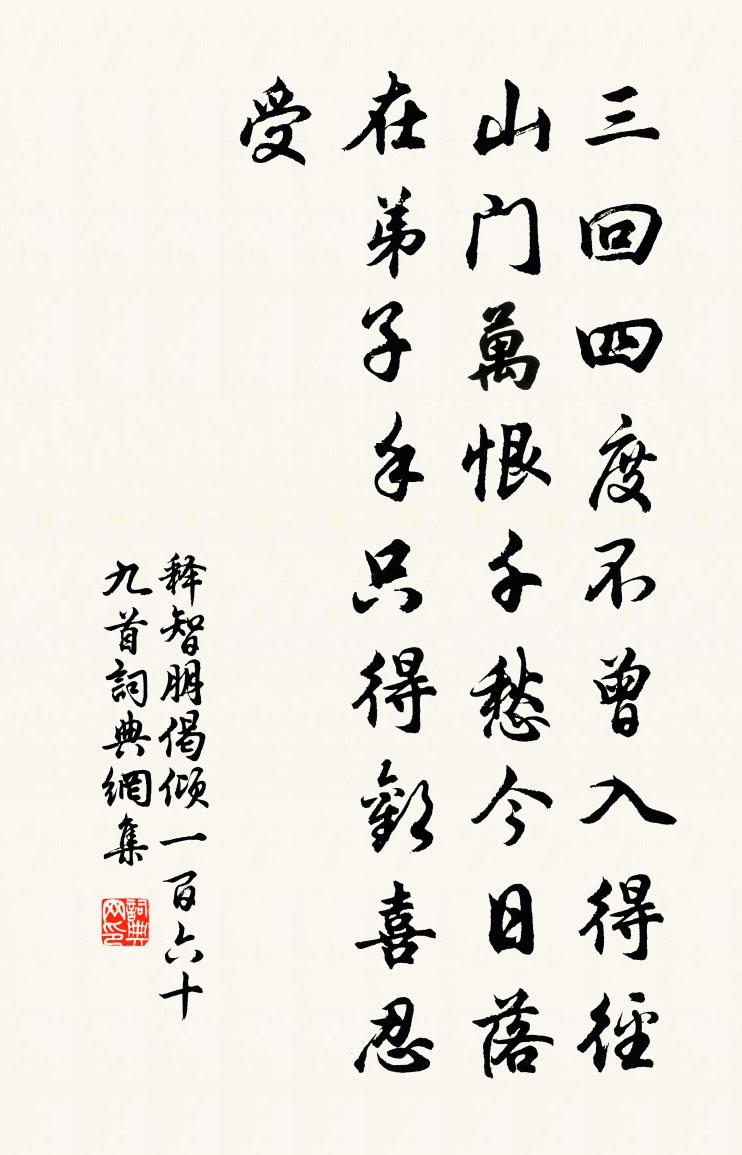 三回四度不曾入得徑
山门萬恨千愁今日落
在弟子手只得歡喜忍
受
释智朋偈倾一百六十
九首詞典網集
詞典
网印